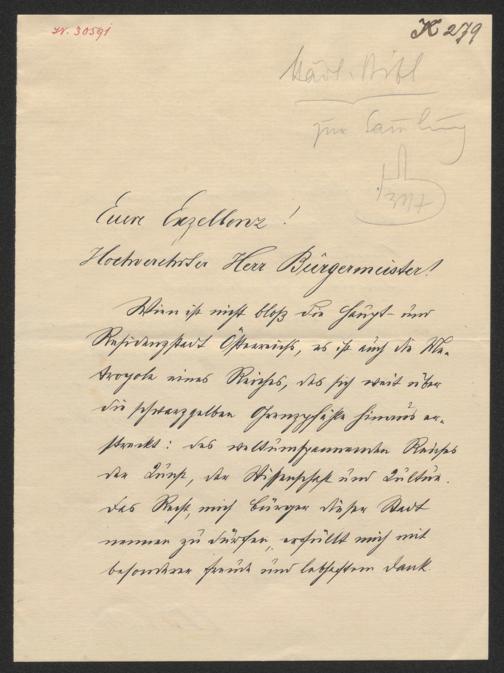 N. 30591
K 279
Städt. Bibl
zur Sammlung
Euere Exzellenz!
Hochverehrter Herr Bürgermeister!
Wien ist nicht bloß die Haupt- und
Residenzstadt Österreichs, es ist auch die Me-
tropole eines Reiches, das sich weit über
die schwarzgelben Grenzpfähle hinaus er-
streckt: des weltumspannenden Reiches
der Kunst, der Wissenschaft und Kultur.
Das Recht, mich Bürger dieser Stadt
nennen zu dürfen, erfüllt mich mit
besonderer Freude und lebhaftem Dank.